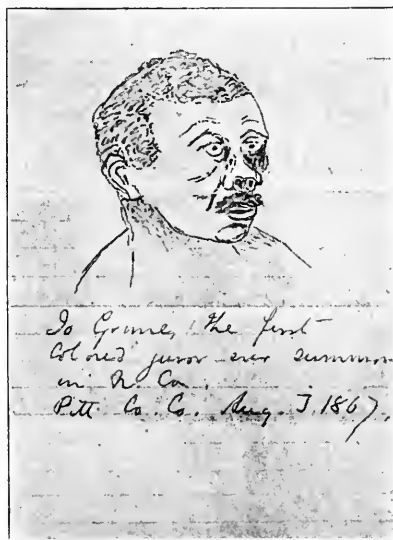 Jo Grime, the first
Colored juror ever summon
in N. Ca.
Pitt Co. Co. Aug. T. 1867.